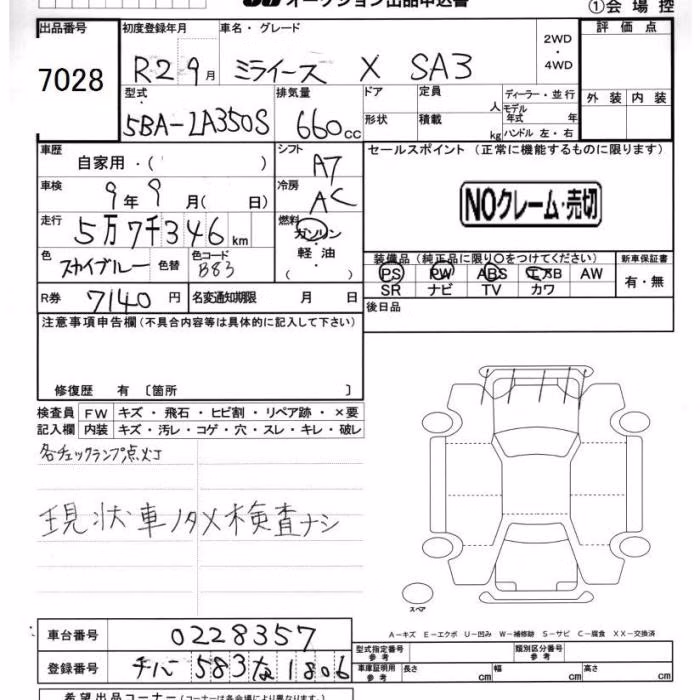 オークション出品申込書 ①会場控
出品番号 初度登録年月 車名・グレード 2WD・4WD 評価点
7028 R2 9月 ミライース X SA3
型式 排気量 ドア 定員 人 ディーラー・並行 外装 内装
5BA-LA350S 660cc 形状 積載 kg モデル年式 年 ハンドル 左・右
車歴 自家用・( ) シフト A7 セールスポイント (正常に機能するものに限ります)
車検 9年9月(日) 冷房 AC NOクレーム・売切
走行 5万7千346km 燃料 ガソリン・軽油 ( )
色 スカイブルー 色替 色コード B83
装備品 (純正品に限り○をつけてください) 新車保証書
PS PW ABS エアB AW 有・無
SR ナビ TV カワ
R券 7140円 名変通知期限 月 日 後日品
注意事項申告欄 (不具合内容等は具体的に記入して下さい)
修復歴 有 〔箇所 〕
検査員 FW キズ・飛石・ヒビ割・リペア跡・×要
記入欄 内装 キズ・汚レ・コゲ・穴・スレ・キレ・破レ
各チェックランプ点灯
現状車ノタメ検査ナシ
スペア
A-キズ E-エクボ U-凹み W-補修跡 S-サビ C-腐食 XX-交換済
車台番号 0228357 型式指定番号 参考 類別区分番号 参考
登録番号 千葉 583 な 1806 車庫証明用 参考 長さ cm 幅 cm 高さ cm
希望出品コーナー (コーナーは各会場により異なります)